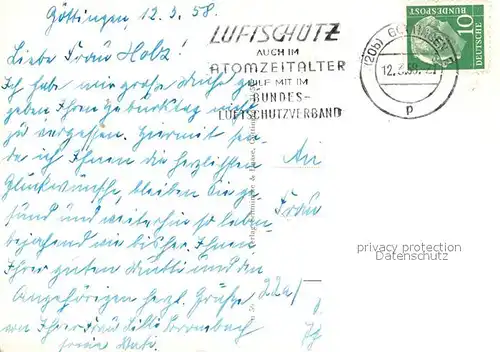 Göttingen, 12. 3. 58.
Liebe Frau Holz!
Ich hab mir große Mühe ge
geben Ihren Geburtstag nicht
zu vergessen. Hiermit sen
de ich Ihnen die herzlichsten
Glückwünsche, bleiben Sie ge
sund und weiterhin so leben
bejahend wie bisher. Ihnen
Ihrer guten Mutti und den
Angehörigen herzl. Grüße
von Ihrer Frau Lilli
sowie
LUFTSCHUTZ
AUCH IM
ATOMZEITALTER
HILF MIT IM
BUNDES-
LUFTSCHUTZVERBAND
(20b) GÖTTINGEN
12.3.58
p
10
DEUTSCHE
BUNDESPOST
An
Frau
22a/
privacy protection
Datenschutz